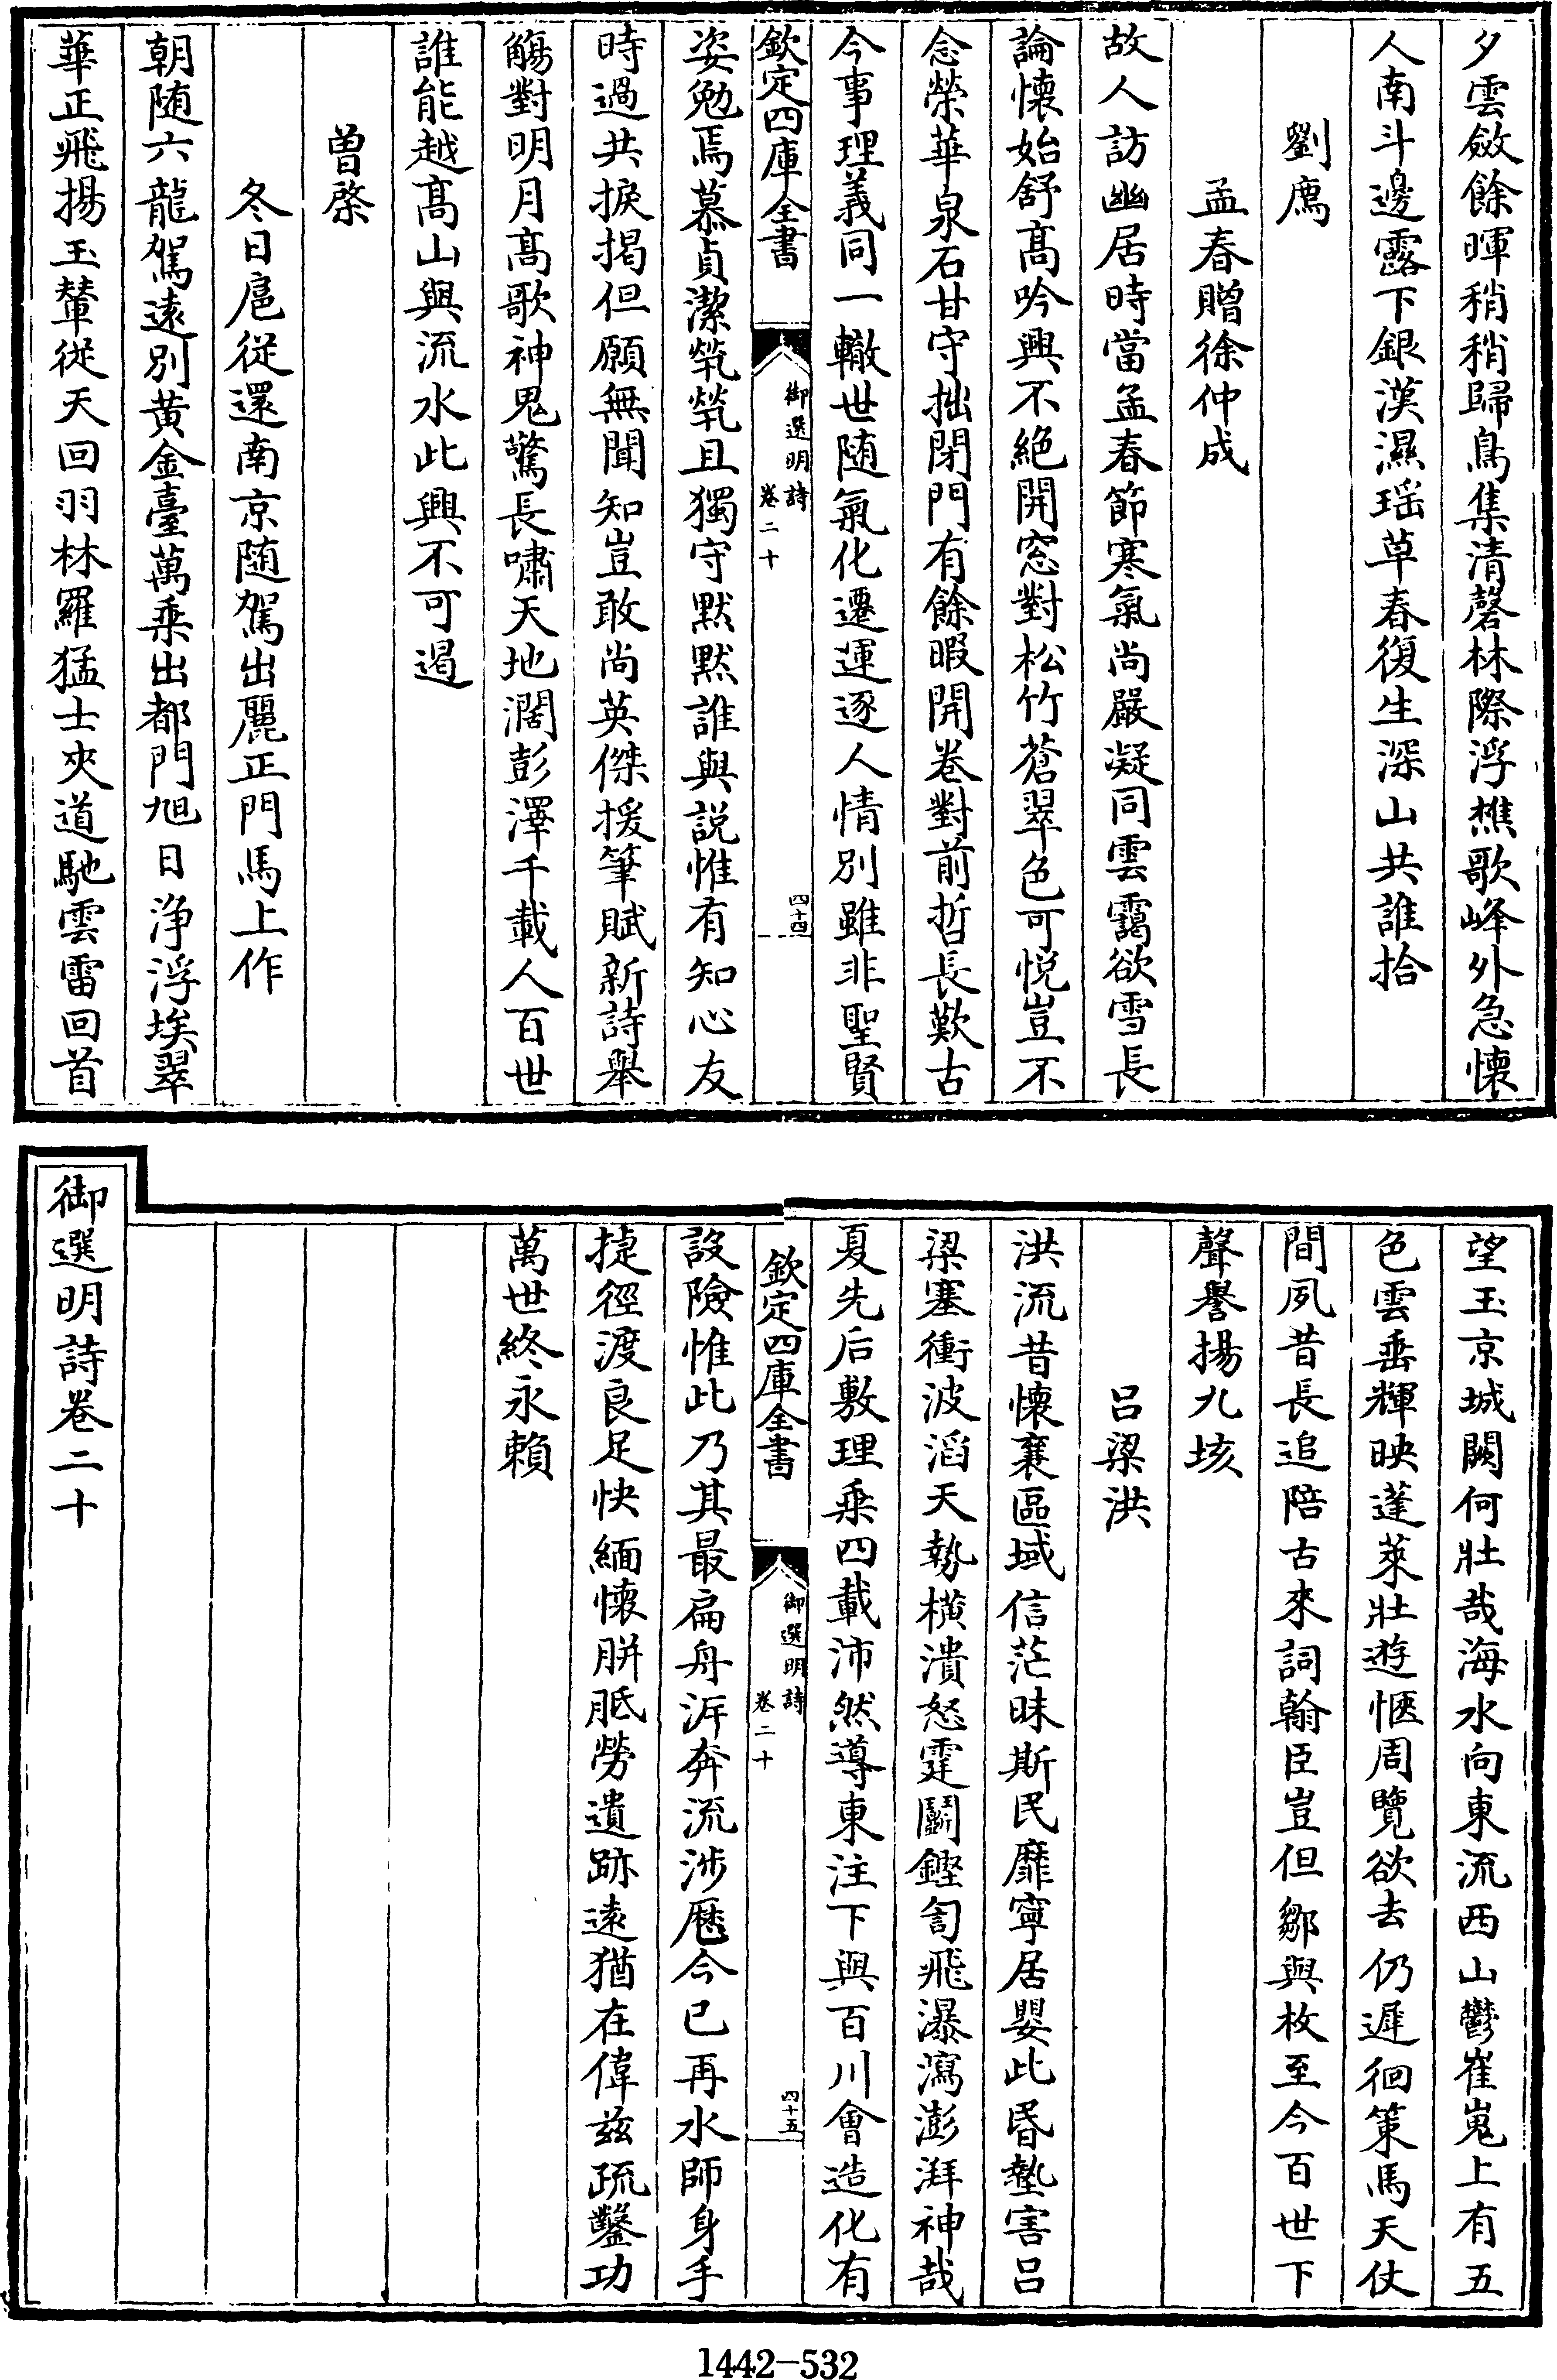 夕雲斂餘暉稍稍歸鳥集清磬林際浮樵歌峰外急懷
人南斗邊露下銀漢濕瑶草春復生深山共誰拾
劉廌
孟春贈徐仲成
故人訪幽居時當孟春節寒氣尚嚴凝同雲靄欲雪長
論懷始舒髙吟興不絶開窓對松竹蒼翠色可悦豈不
念榮華泉石甘守拙閉門有餘暇開卷對前哲長歎古
今事理義同一轍世随氣化遷運逐人情别雖非聖賢
欽定四庫全書
御選明詩
卷二十
四十四
姿勉焉慕貞潔煢煢且獨守黙黙誰與説惟有知心友
時過共捩掲但願無聞知豈敢尚英傑援筆賦新詩舉
觴對明月髙歌神鬼驚長嘯天地濶彭澤千載人百世
誰能越髙山與流水此興不可遏
曽棨
冬日扈從還南京随駕出麗正門馬上作
朝随六龍駕逺别黄金臺萬乗出都門旭日浄浮埃翠
華正飛揚玉輦從天回羽林羅猛士夾道馳雲雷回首
望玉京城闕何壯哉海水向東流西山鬱崔嵬上有五
色雲垂輝映蓬萊壯遊愜周覽欲去仍遲徊策馬天仗
間夙昔長追陪古來詞翰臣豈但鄒與枚至今百世下
聲譽揚九垓
吕梁洪
洪流昔懷襄區域信茫昧斯民靡寧居嬰此昬墊害吕
梁塞衝波滔天勢横潰怒霆鬬鏗訇飛瀑瀉澎湃神哉
夏先后敷理乗四載沛然導東注下與百川會造化有
欽定四庫全書
御選明詩
卷二十
四十五
設險惟此乃其最扁舟泝奔流涉厯今已再水師身手
捷徑渡良足快緬懷胼胝勞遺跡逺猶在偉兹疏鑿功
萬世終永賴
御選明詩卷二十
1442-532